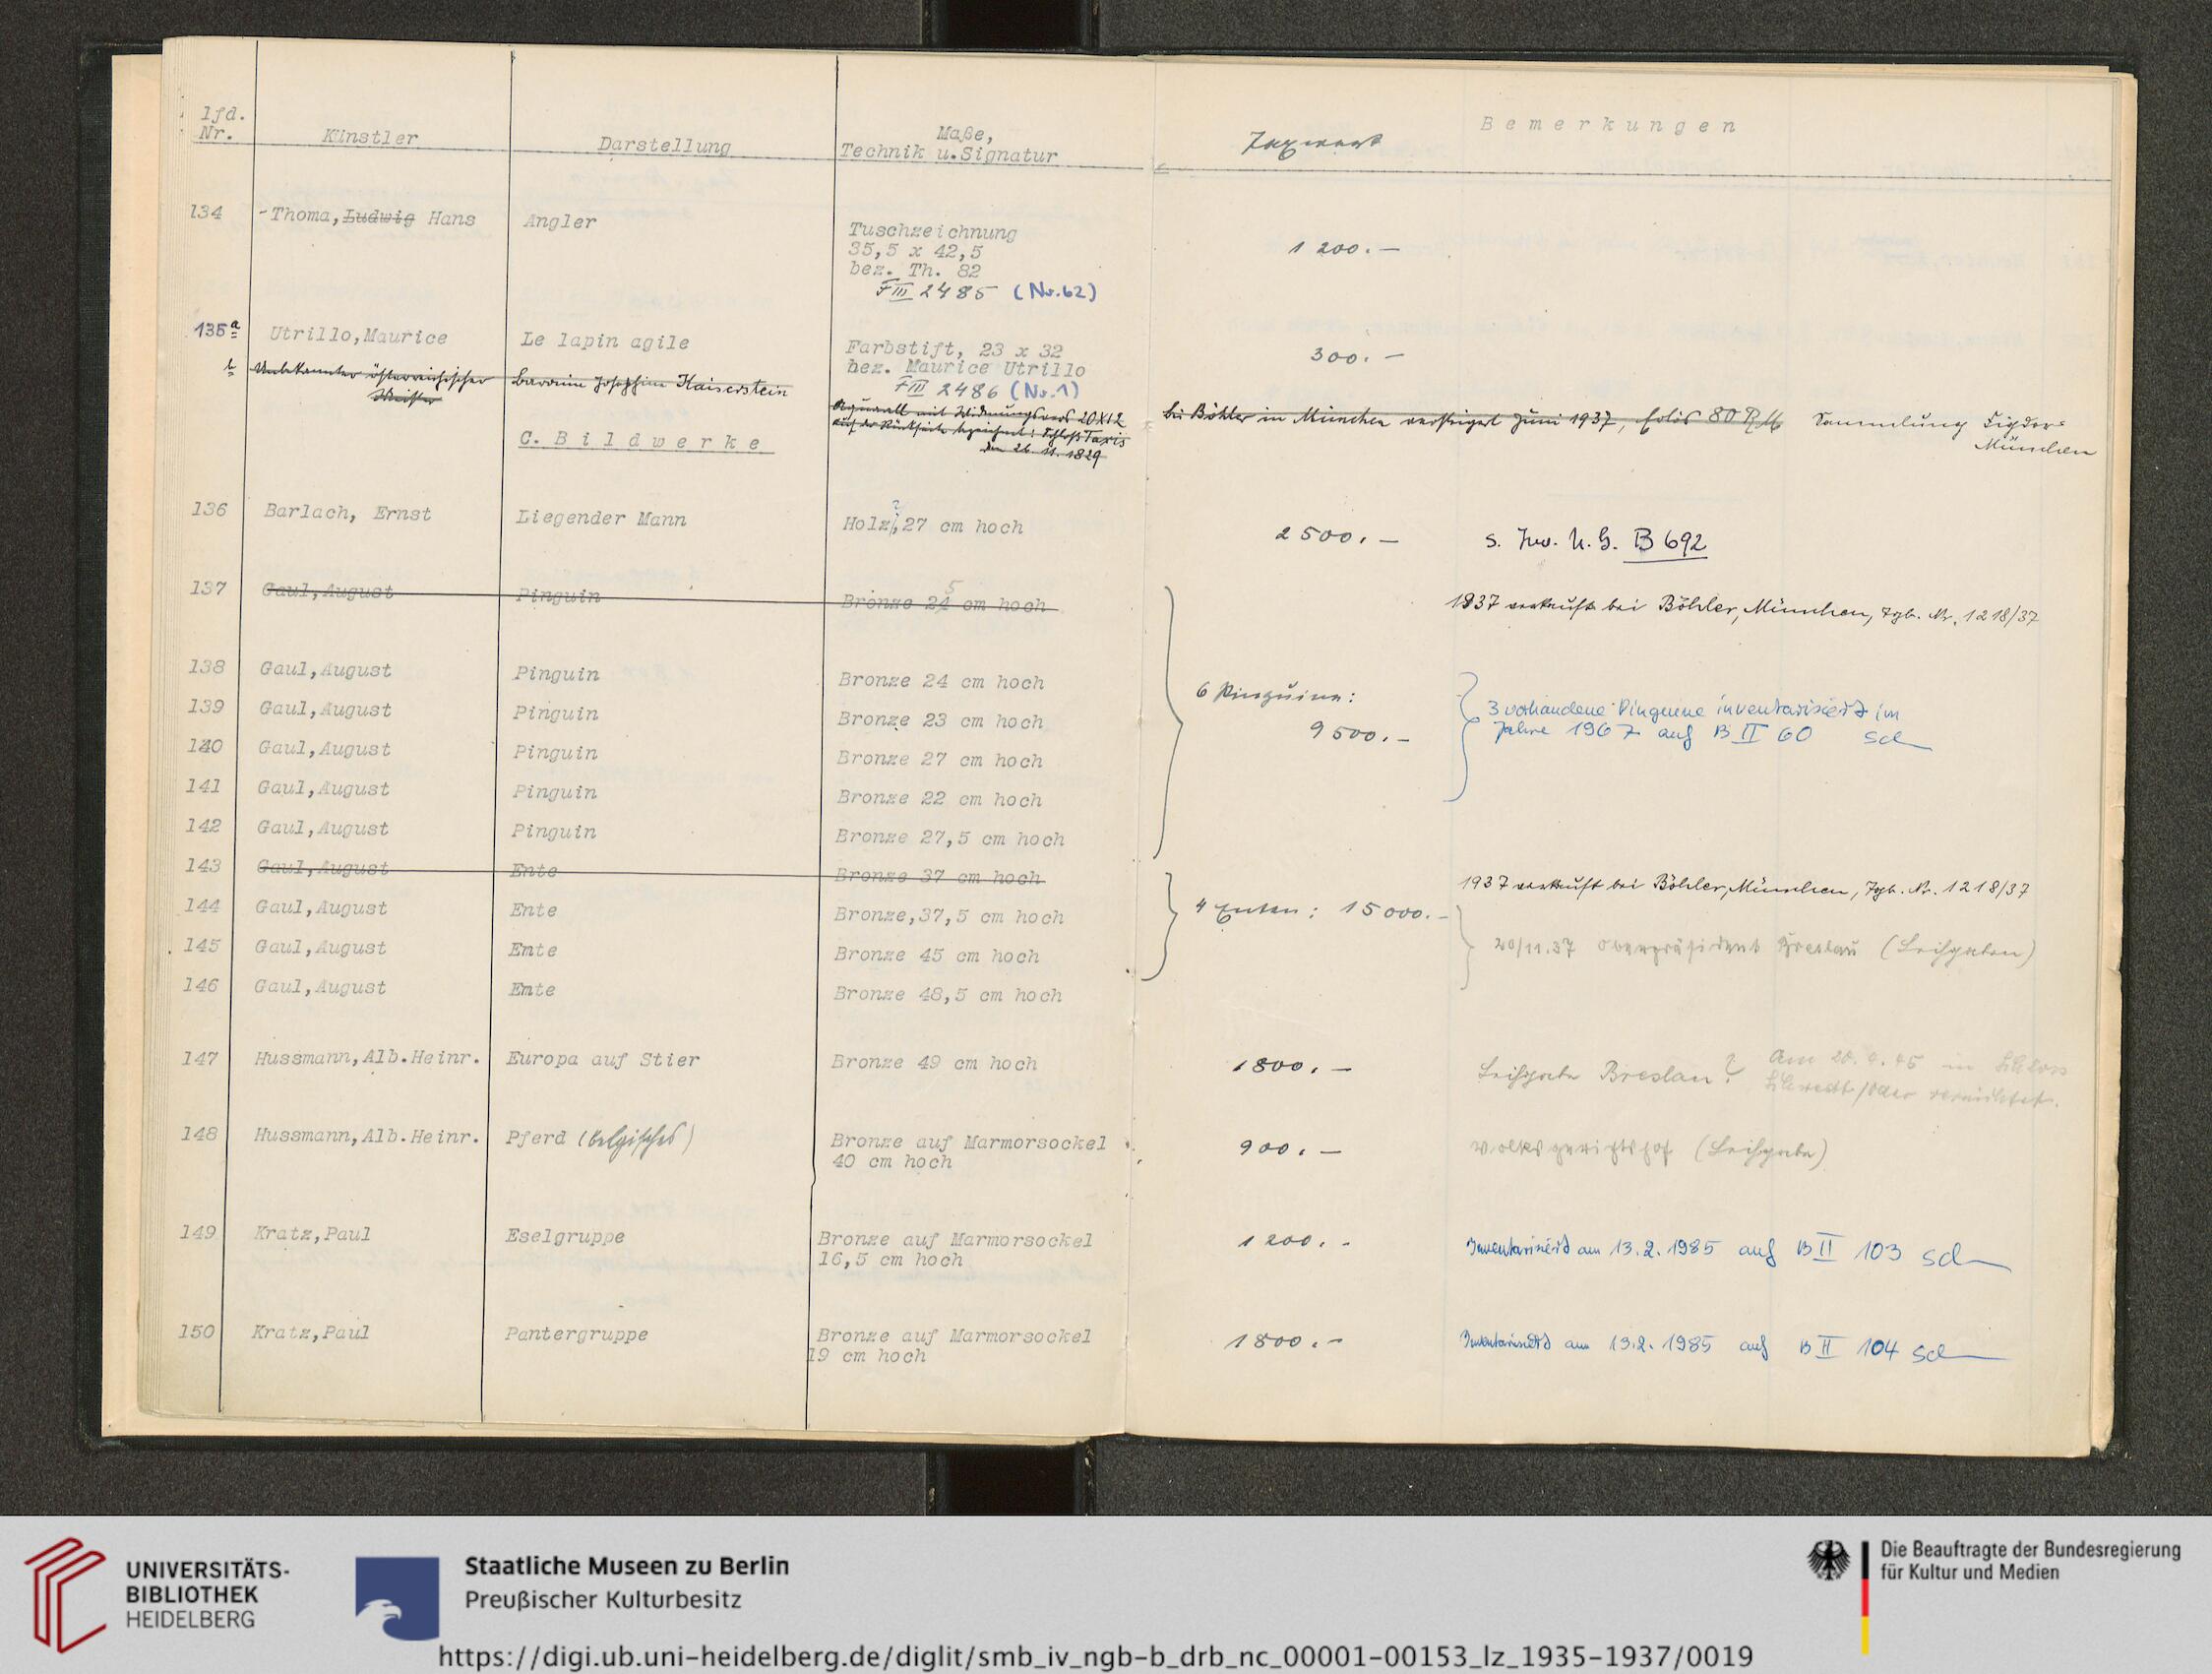 lfd. Nr. Künstler Darstellung Maße, Technik u. Signatur Taxwert Bemerkungen
134 -Thoma, Ludwig Hans Angler Tuschzeichnung 1 200.–
35,5 x 42,5
bez. Th. 82
F III 2485 (Nr. 62)
135 a Utrillo, Maurice Le lapin agile Farbstift, 23 x 32 300.–
bez. Maurice Utrillo
F III 2486 (Nr. 1)
b Unbekannter österreichischer Meister Baronin Josephine Kaiserstein Aquarell mit Widmungsvers 20x12 bei Böhler in München versteigert Juni 1937, Erlös 80 RM Sammlung Figdor=
auf der Rückseite bezeichnet: Schloß Taxis München
den 26. 11. 1829
C. Bildwerke
136 Barlach, Ernst Liegender Mann Holz?, 27 cm hoch 2 500.– s. Inv. N.G. B 692
137 Gaul, August Pinguin Bronze 24 5 cm hoch 1937 verkauft bei Böhler, München, Tgb. Nr. 1218/37
138 Gaul, August Pinguin Bronze 24 cm hoch 6 Pinguine:
139 Gaul, August Pinguin Bronze 23 cm hoch 9 500.– 3 vorhandene Pinguine inventarisiert im
140 Gaul, August Pinguin Bronze 27 cm hoch Jahre 1967 auf B II 60 Sch
141 Gaul, August Pinguin Bronze 22 cm hoch
142 Gaul, August Pinguin Bronze 27,5 cm hoch
143 Gaul, August Ente Bronze 37 cm hoch 1937 verkauft bei Böhler, München, Tgb. Nr. 1218/37
144 Gaul, August Ente Bronze, 37,5 cm hoch 4 Enten: 15 000.–
145 Gaul, August Ente Bronze 45 cm hoch 20/11.37 Oberpräsident Breslau (Leihgaben)
146 Gaul, August Ente Bronze 48,5 cm hoch
147 Hussmann, Alb. Heinr. Europa auf Stier Bronze 49 cm hoch 1800.– Leihgabe Breslau? Am 20. 4. 45 in Schloss
Schwedt/Oder vernichtet.
148 Hussmann, Alb. Heinr. Pferd (belgisches) Bronze auf Marmorsockel 900.– Volksgerichtshof (Leihgabe)
40 cm hoch
149 Kratz, Paul Eselgruppe Bronze auf Marmorsockel 1 200.– Inventarisiert am 13.2.1985 auf B II 103 Sch
16,5 cm hoch
150 Kratz, Paul Pantergruppe Bronze auf Marmorsockel 1800.– Inventarisiert am 13.2.1985 auf B II 104 Sch
19 cm hoch
UNIVERSITÄTS-
BIBLIOTHEK
HEIDELBERG
Staatliche Museen zu Berlin
Preußischer Kulturbesitz
Die Beauftragte der Bundesregierung
für Kultur und Medien
https://digi.ub.uni-heidelberg.de/diglit/smb_iv_ngb-b_drb_nc_00001-00153_lz_1935-1937/0019